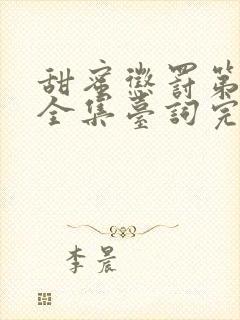 甜蜜懲罰第
全集臺詞完
李晨